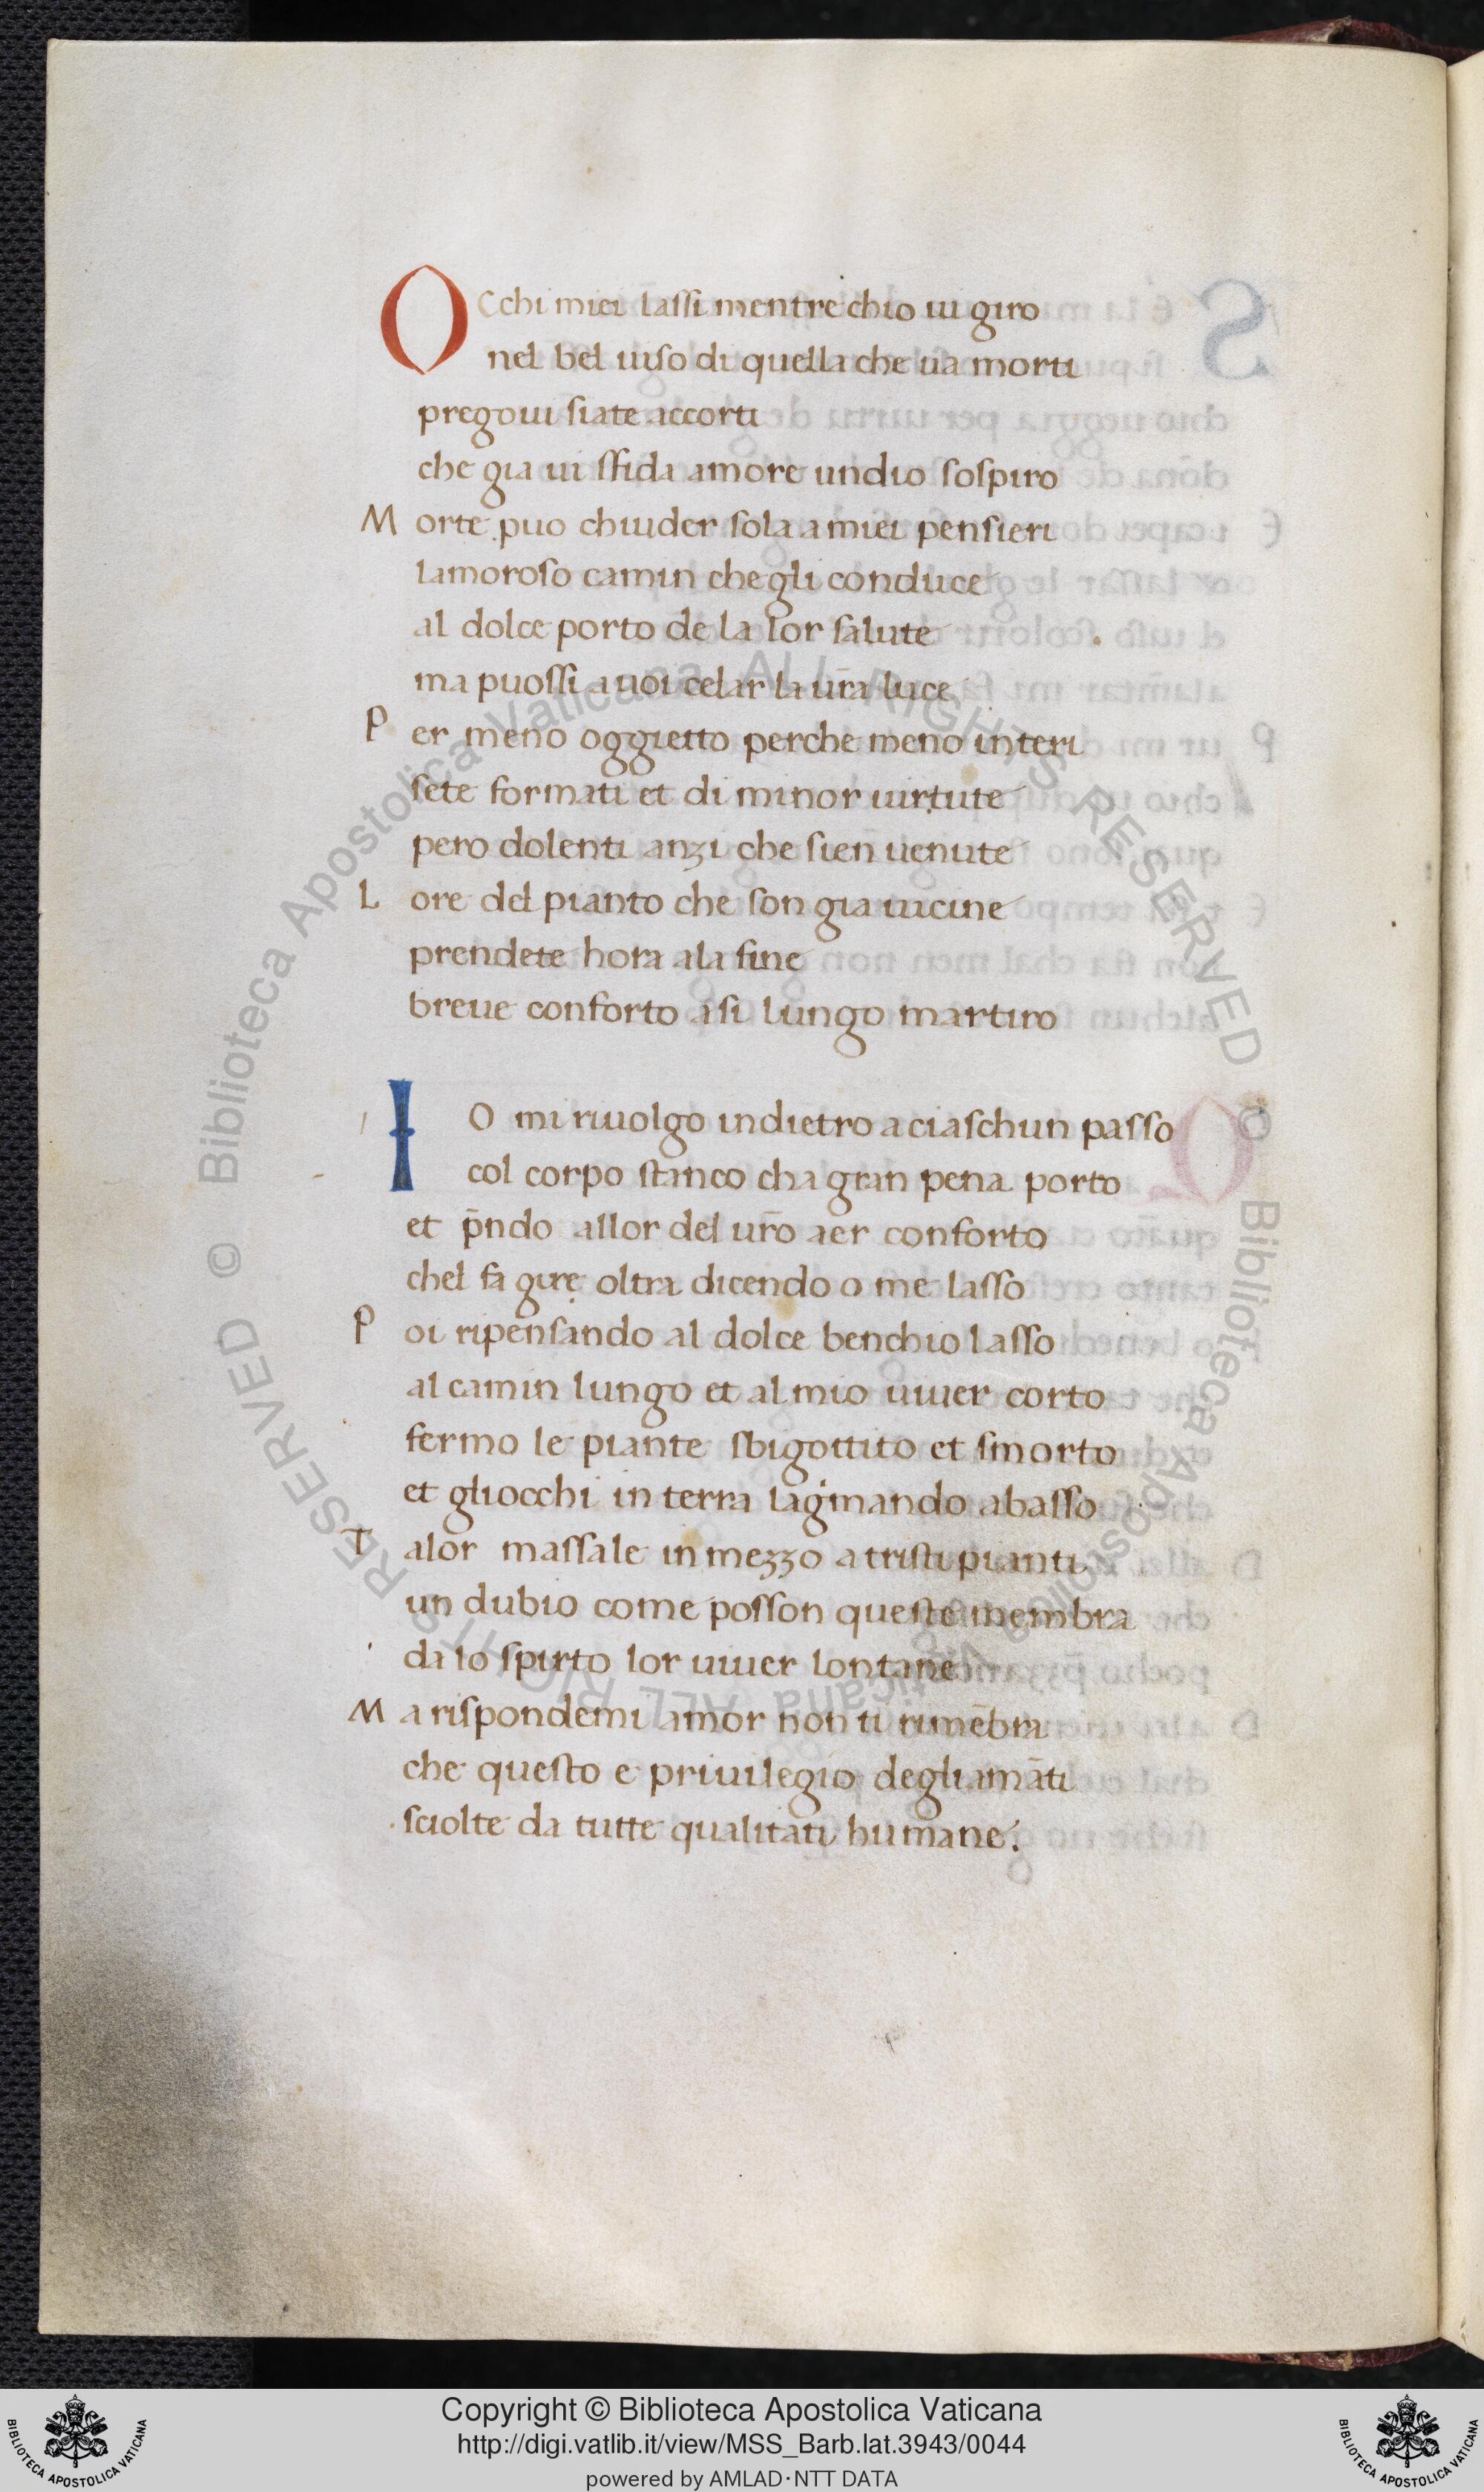 OCchi miei lassi mentre chio ui giro
nel bel uiso di quella che ua morti
pregoui siate accorti
che gia ui sfida amore undio sospiro
M orte puo chiuder sola a miei pensieri
lamoroso camin che gli conduce
al dolce porto de la lor salute
ma puossi a uoi celar la ur̄a luce
P er meno oggietto perche meno interi
sete formati et di minor uirtute
pero dolenti anzi che sien uenute
L ore del pianto che son gia uicine
prendete hora ala fine
breue conforto a si lungo martiro
IO mi riuolgo indietro a ciaschun passo
col corpo stanco cha gran pena porto
et p̄ndo allor del ur̄o aer conforto
chel fa gire oltra dicendo o me lasso
P oi ripensando al dolce benchio lasso
al camin lungo et al mio uiuer corto
fermo le piante sbigottito et smorto
et gliocchi in terra lagimando abasso
T alor massale in mezzo a tristi pianti
un dubio come posson queste membra
da lo spirto lor uiuer lontane
M a rispondemi amor non ti rimēbra
che questo e priuilegio degli amāti
sciolte da tutte qualitati humane.
© Biblioteca Apostolica Vaticana ALL RIGHTS RESERVED
© Biblioteca Apostolica Vaticana ALL RIGHTS RESERVED
Copyright © Biblioteca Apostolica Vaticana
http://digi.vatlib.it/view/MSS_Barb.lat.3943/0044
powered by AMLAD·NTT DATA
BIBLIOTECA APOSTOLICA VATICANA
BIBLIOTECA APOSTOLICA VATICANA